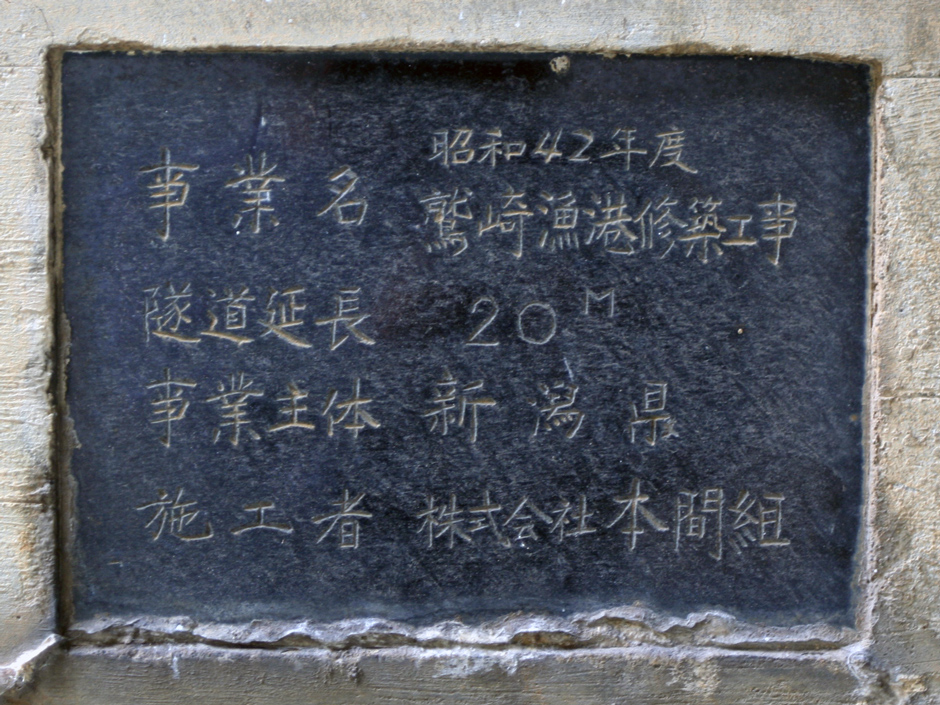 昭和42年度
事業名 鷲崎漁港修築工事
隧道延長 20M
事業主体 新潟県
施工者 株式会社本間組